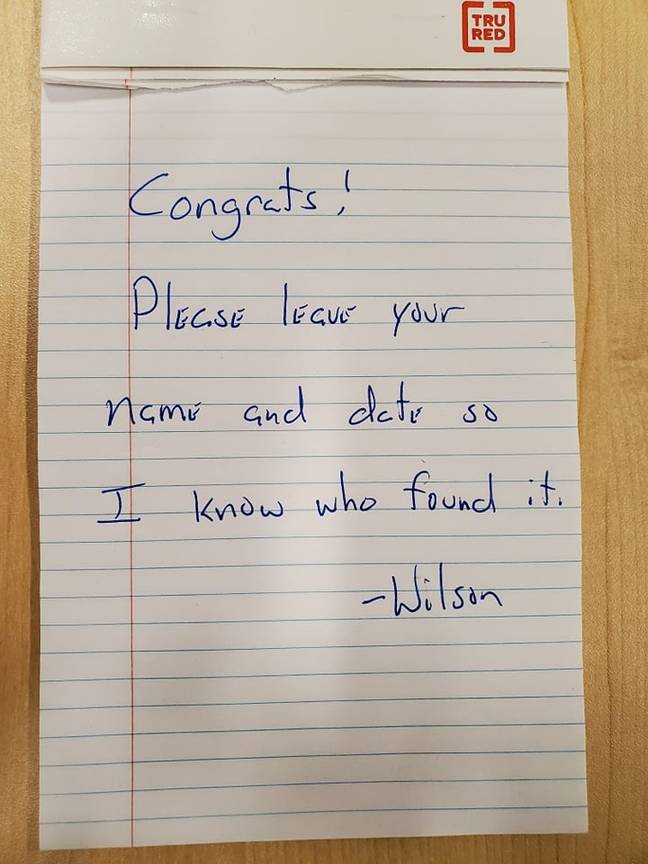 TRU
RED
Congrats!
Please leave your
name and date so
I know who found it.
-Wilson